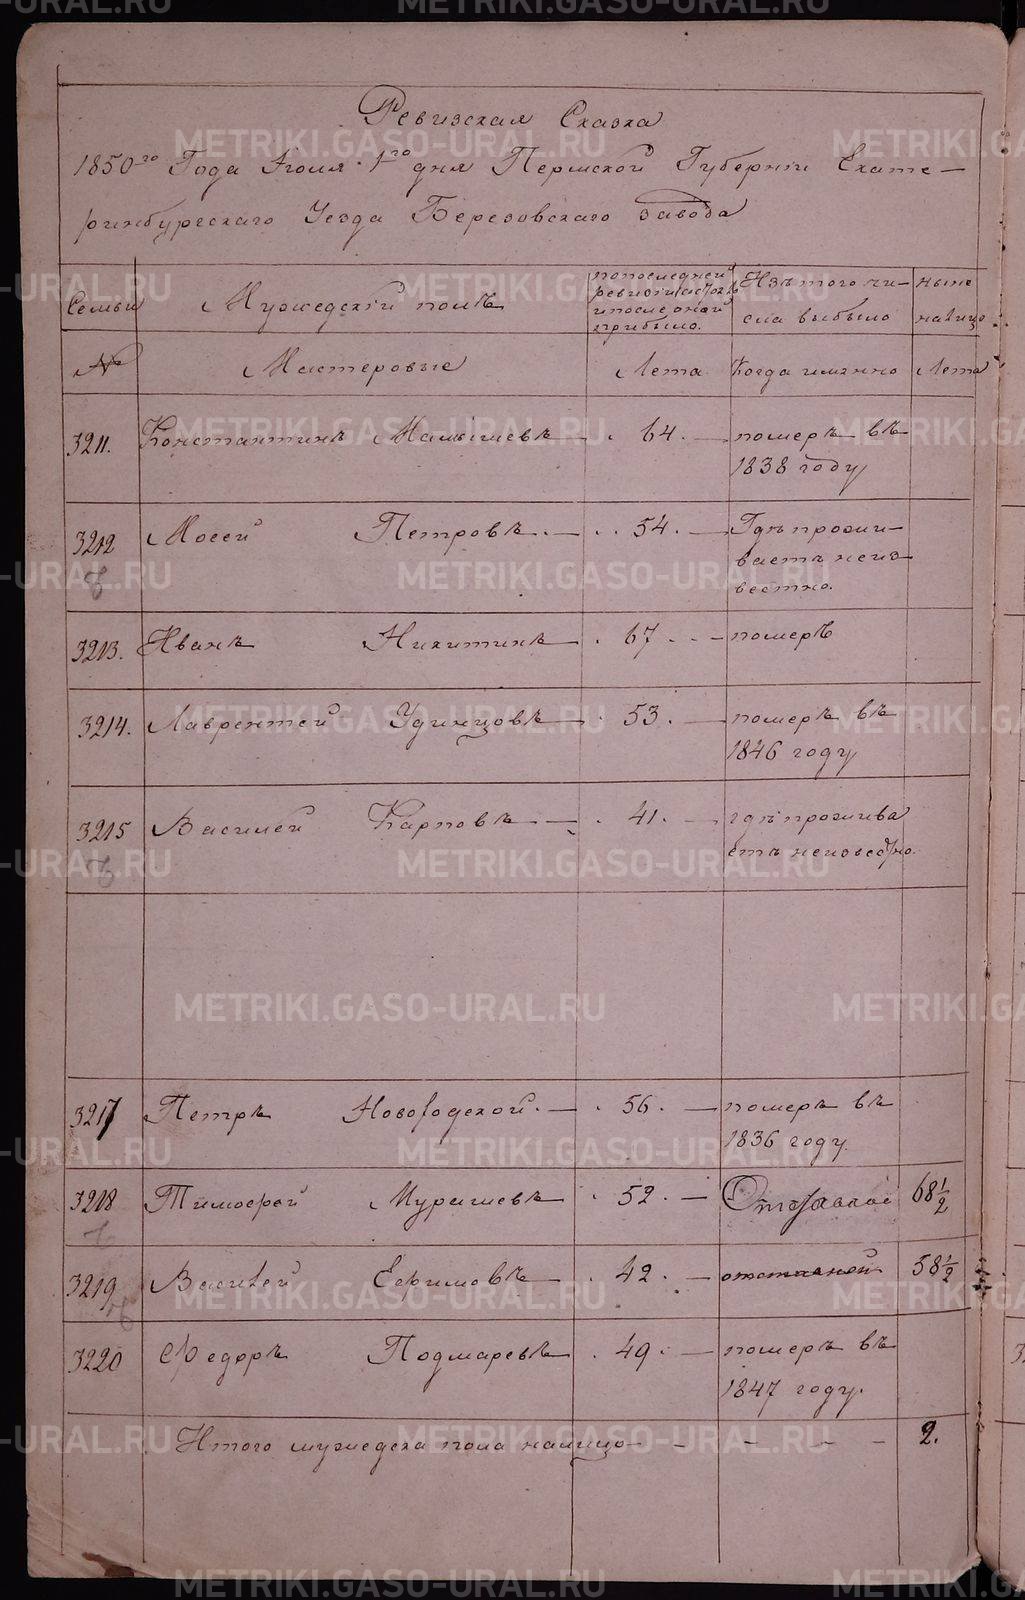 Ревизская Сказка
1850-го Года Июля 1го дня Пермской Губернiи Екате-
ринбургскаго Уезда Березовскаго завода
Семьи Мужедскiй полъ по последней ревизiи состояло и после оной прибыло. Изъ того чи-сла выбыло ныне налицо
№ Мастеровые Лета Когда имянно Лета
3211. Константинъ Малышевъ 64. — померъ въ
1838 году
3212 Мосей Петровъ. — 54. — Гдъ прожи-
ваетъ неиз-
вестно.
3213. Иванъ Никитинъ — 67 - - - померъ
3214. Лаврентей Удинцовъ — 53. — померъ въ
1846 году
3215 Василей Карповъ. — 41. — гдъ прожива
етъ неизвестно.
3217 Петръ Новогодской. — 56. — померъ въ
1836 году.
3218 Тимофей Мурашевъ 52. — Отставной 68 1/2
3219 Василей Ефимовъ 42. — отставной 58 1/2
3220 Федоръ Подмаревъ 49. — померъ въ
1847 году.
Итого мужедска пола налицо - - - - - 2.
METRIKI.GASO-URAL.RU